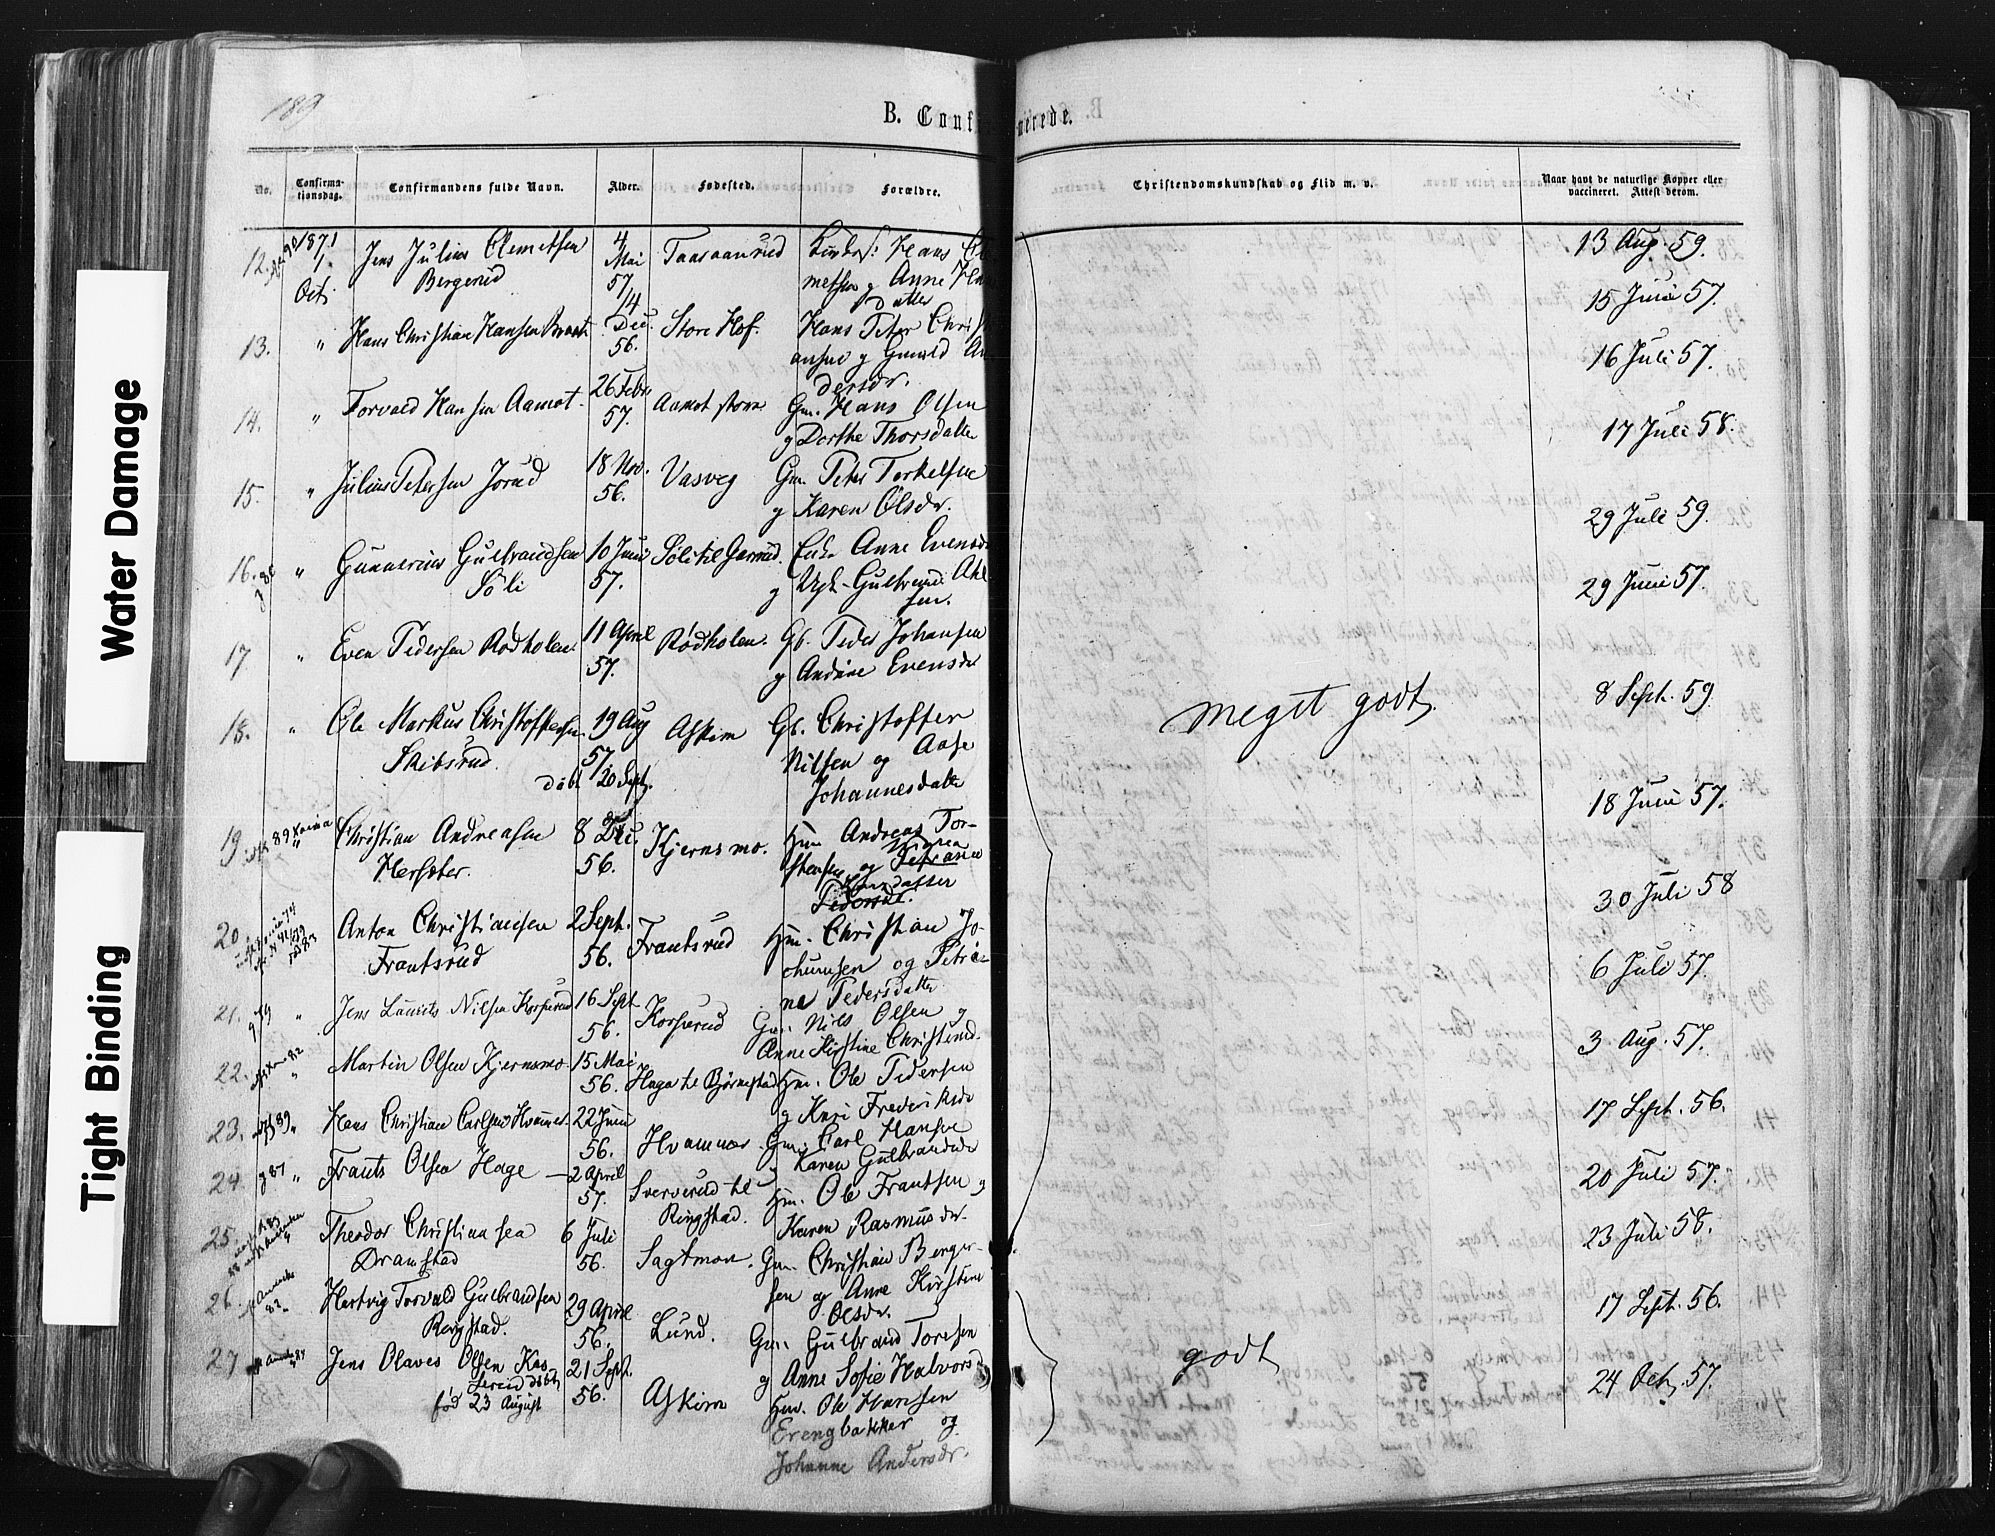 189
B. Conf
merede.
No.
Confirma-
tionsdag.
Confirmandens fulde Navn.
Alder.
Fødested.
Forældre.
Christendomskundskab og Flid m. v.
Naar havt de naturlige Kopper eller
vaccineret. Attest derom.
12. 1871 Jens Julius Clemetsen 4 Taasaanrud Hans Cle
1. Bergerud Mai metsen g Anne Han
Oct. 57 datter
13. " Hans Christian Hansen Braat 4 Dec. Store Hof. Hans Peter Christ
56. ansen g Gunild An
dersdr.
14. " Torvald Hansen Aamot 26 Febr. Aamot store Gm. Hans Olsen
57. g Dorthe Thorsdatter
15. " Julius Petersen Jorud 18 Nov. Vasveg Gm. Peter Torkelsen
56. g Karen Olsdr.
16. " Gunnerius Gulbrandsen 10 Juni Søli til Garsrud. Enke Anne Evensd
Søli 57. g Ugk. Gulbrand
sen.
17 " Even Pedersen Rødholen 11 April Rødholen. Gb. Peder Johansen
57. g Andrine Evensdr
18. " Ole Markus Christoffersen 19 Aug Askim Gb. Christoffer
Skibsrud. 57 Nilsen og Aase
døbt 20 Sept. Johannesdatter
19 Christian Andreasen 8 Dec. Kjernsmo. Hm. Andreas Tor-
Hersæter. 56. stensen og
Pedersdr.
20. Anton Christiansen 2 Sept. Frantsrud Hm. Christian Jo-
Frantsrud 56. chumsen og Petri-
ne Pedersdatter
21. 79 " Jens Laurits Nilsen Korserud 16 Sept Korserud Gm. Nils Olsen g
56. Anne Kirstine Christensd.
22. 82 " Martin Olsen Kjernsmo 15 Mai Haga til Bjørnestad Hm. Ole Pedersen
56. g Kari Frederiksdr
23. 89 " Hans Christian Carlsen Hvamner 22 Juni Hvamner Gm. Carl Hansen
56. g Karen Gulbrandsdr
24. 87 " Frants Olsen Hage 2 April Sververud til Hm. Ole Frantsen g
57. Ringstad. Karen Rasmusdr.
25. Theodor Christiansen 6 Juli Sagtmon. Gm. Christian Berger-
Dramstad 56. sen og Anne Kirstine
Olsdr.
26. 82 Hartvig Torvald Gulbrandsen 29 April Lund. Gm. Gulbrand Toresen
Ringstad. 56. g Anne Sofie Halvorsd
27 Jens Olaves Olsen Kas 21 Sept. Askim Hm. Ole Hansen
serud døbt 56. Erengbakker og
fød 23 August Johanne Andersdr.
13 Aug. 59.
15 Juni 57.
16 Juli 57.
17 Juli 58.
29 Juli 59.
29 Juni 57.
meget godt. 8 Sept. 59
18 Juni 57.
30 Juli 58
6 Juli 57.
3 Aug. 57.
17 Sept. 56.
20 Juli 57.
23 Juli 58.
17 Sept. 56.
godt
24 Oct. 57.
Water Damage
Tight Binding